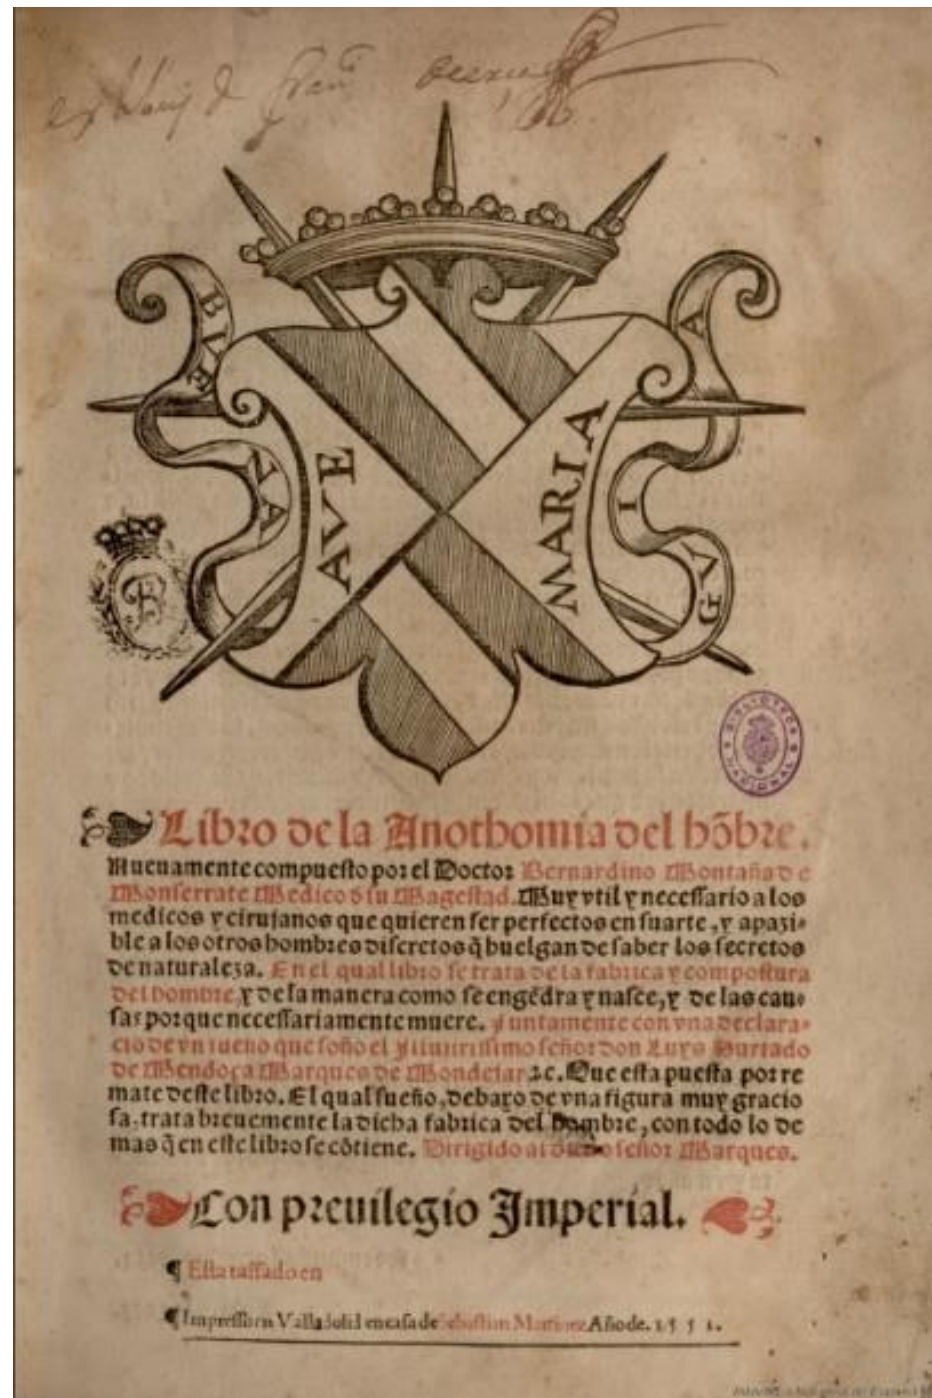 BVE
NA
GVI
A
AVE
MARIA
BIBLIOTECA NACIONAL
Libro de la Anothomia del hõbre.
Nueuamente compuesto por el Doctor Bernardino Montaña de
Monserrate Medico d su Magestad. Muy vtil y necessario a los
medicos y cirujanos que quieren ser perfectos en su arte, y apazi-
ble a los otros hombres discretos q̃ huelgan de saber los secretos
de naturaleza. En el qual libro se trata de la fabrica y compostura
del hombre, y de la manera como se engẽdra y nasce, y de las cau-
sas porque necessariamente muere. Juntamente con vna declara-
cio de vn sueño que soño el Illustrissimo señor don Luys Hurtado
de Mendoça Marques de Mondejar ⁊c. Que esta puesta por re
mate deste libro. El qual sueño, debaxo de vna figura muy gracio
sa, trata breuemente la dicha fabrica del hombre, con todo lo de
mas q̃ en este libro se cõtiene. Dirigido al dicho señor Marques.
Con preuilegio Imperial.
¶ Esta tassado en
¶ Impresso en Valladolid en casa de Sebastian Martinez Año de. 1551.